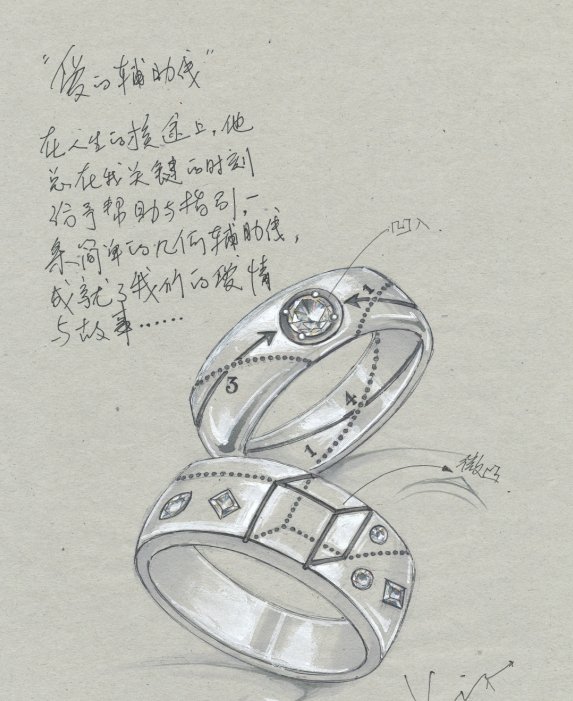 “爱的辅助线”
在人生的旅途上，他
总在我关键的时刻
给予帮助与指引，一
条简单的几何辅助线，
成就了我们的爱情
与故事……
凹入
1
3
4
1
微凸